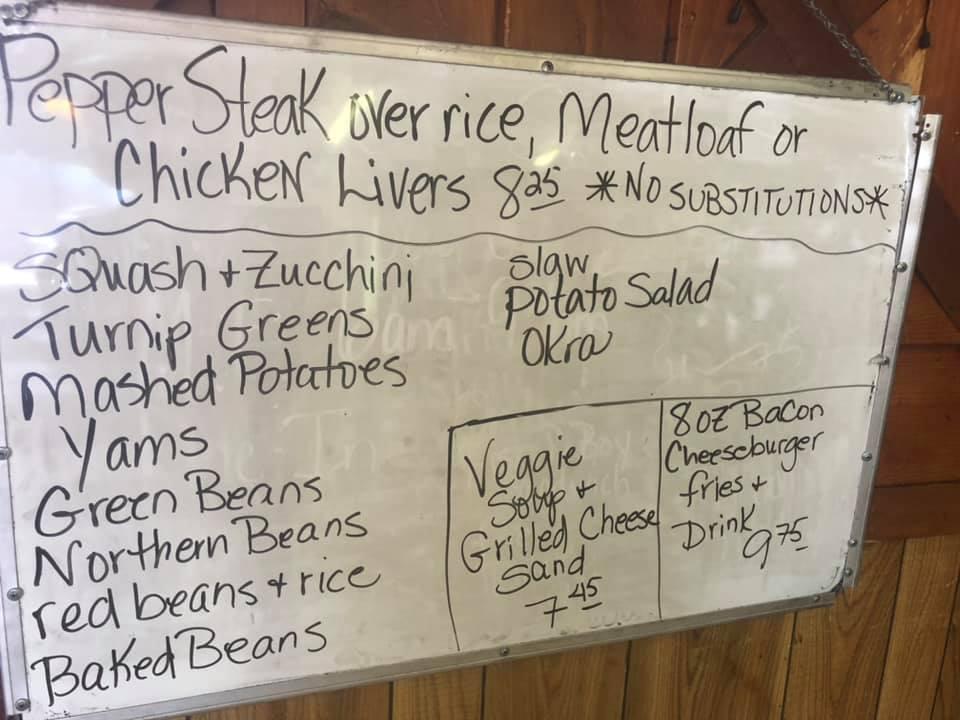 Pepper Steak over rice, Meatloaf or
Chicken Livers 8 25 *NO SUBSTITUTIONS*
Squash + Zucchini
Turnip Greens
Mashed Potatoes
Yams
Green Beans
Northern Beans
red beans + rice
Baked Beans
Slaw
Potato Salad
Okra
Veggie
Soup +
Grilled Cheese
Sand
7 45
8oz Bacon
Cheeseburger
fries +
Drink
9 75